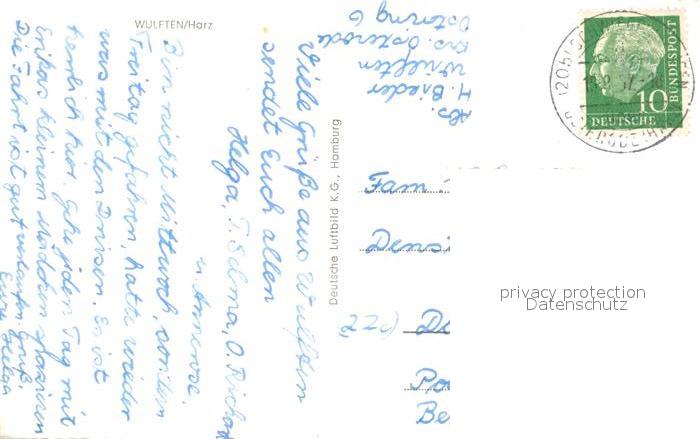 WULFTEN/Harz
Viele Grüße aus Wulften
sendet Euch allen
Helga, T. Selma, O. Richard
u. Annerose.
Bin nicht Mittwoch, sondern
Freitag gefahren, hatte wieder
was mit den Drüsen. Es ist
herrlich hier. Gehe jeden Tag mit
Enkas kleinem Mädchen spazieren
Die Fahrt ist gut verlaufen. Gruß,
Eure Helga
Deutsche Luftbild K.G., Hamburg
Abs.
H. Brieder
Wulften
Krs. Osterode
Ostering 6
DEUTSCHE
BUNDESPOST
10
Fam
privacy protection
Datenschutz
Be